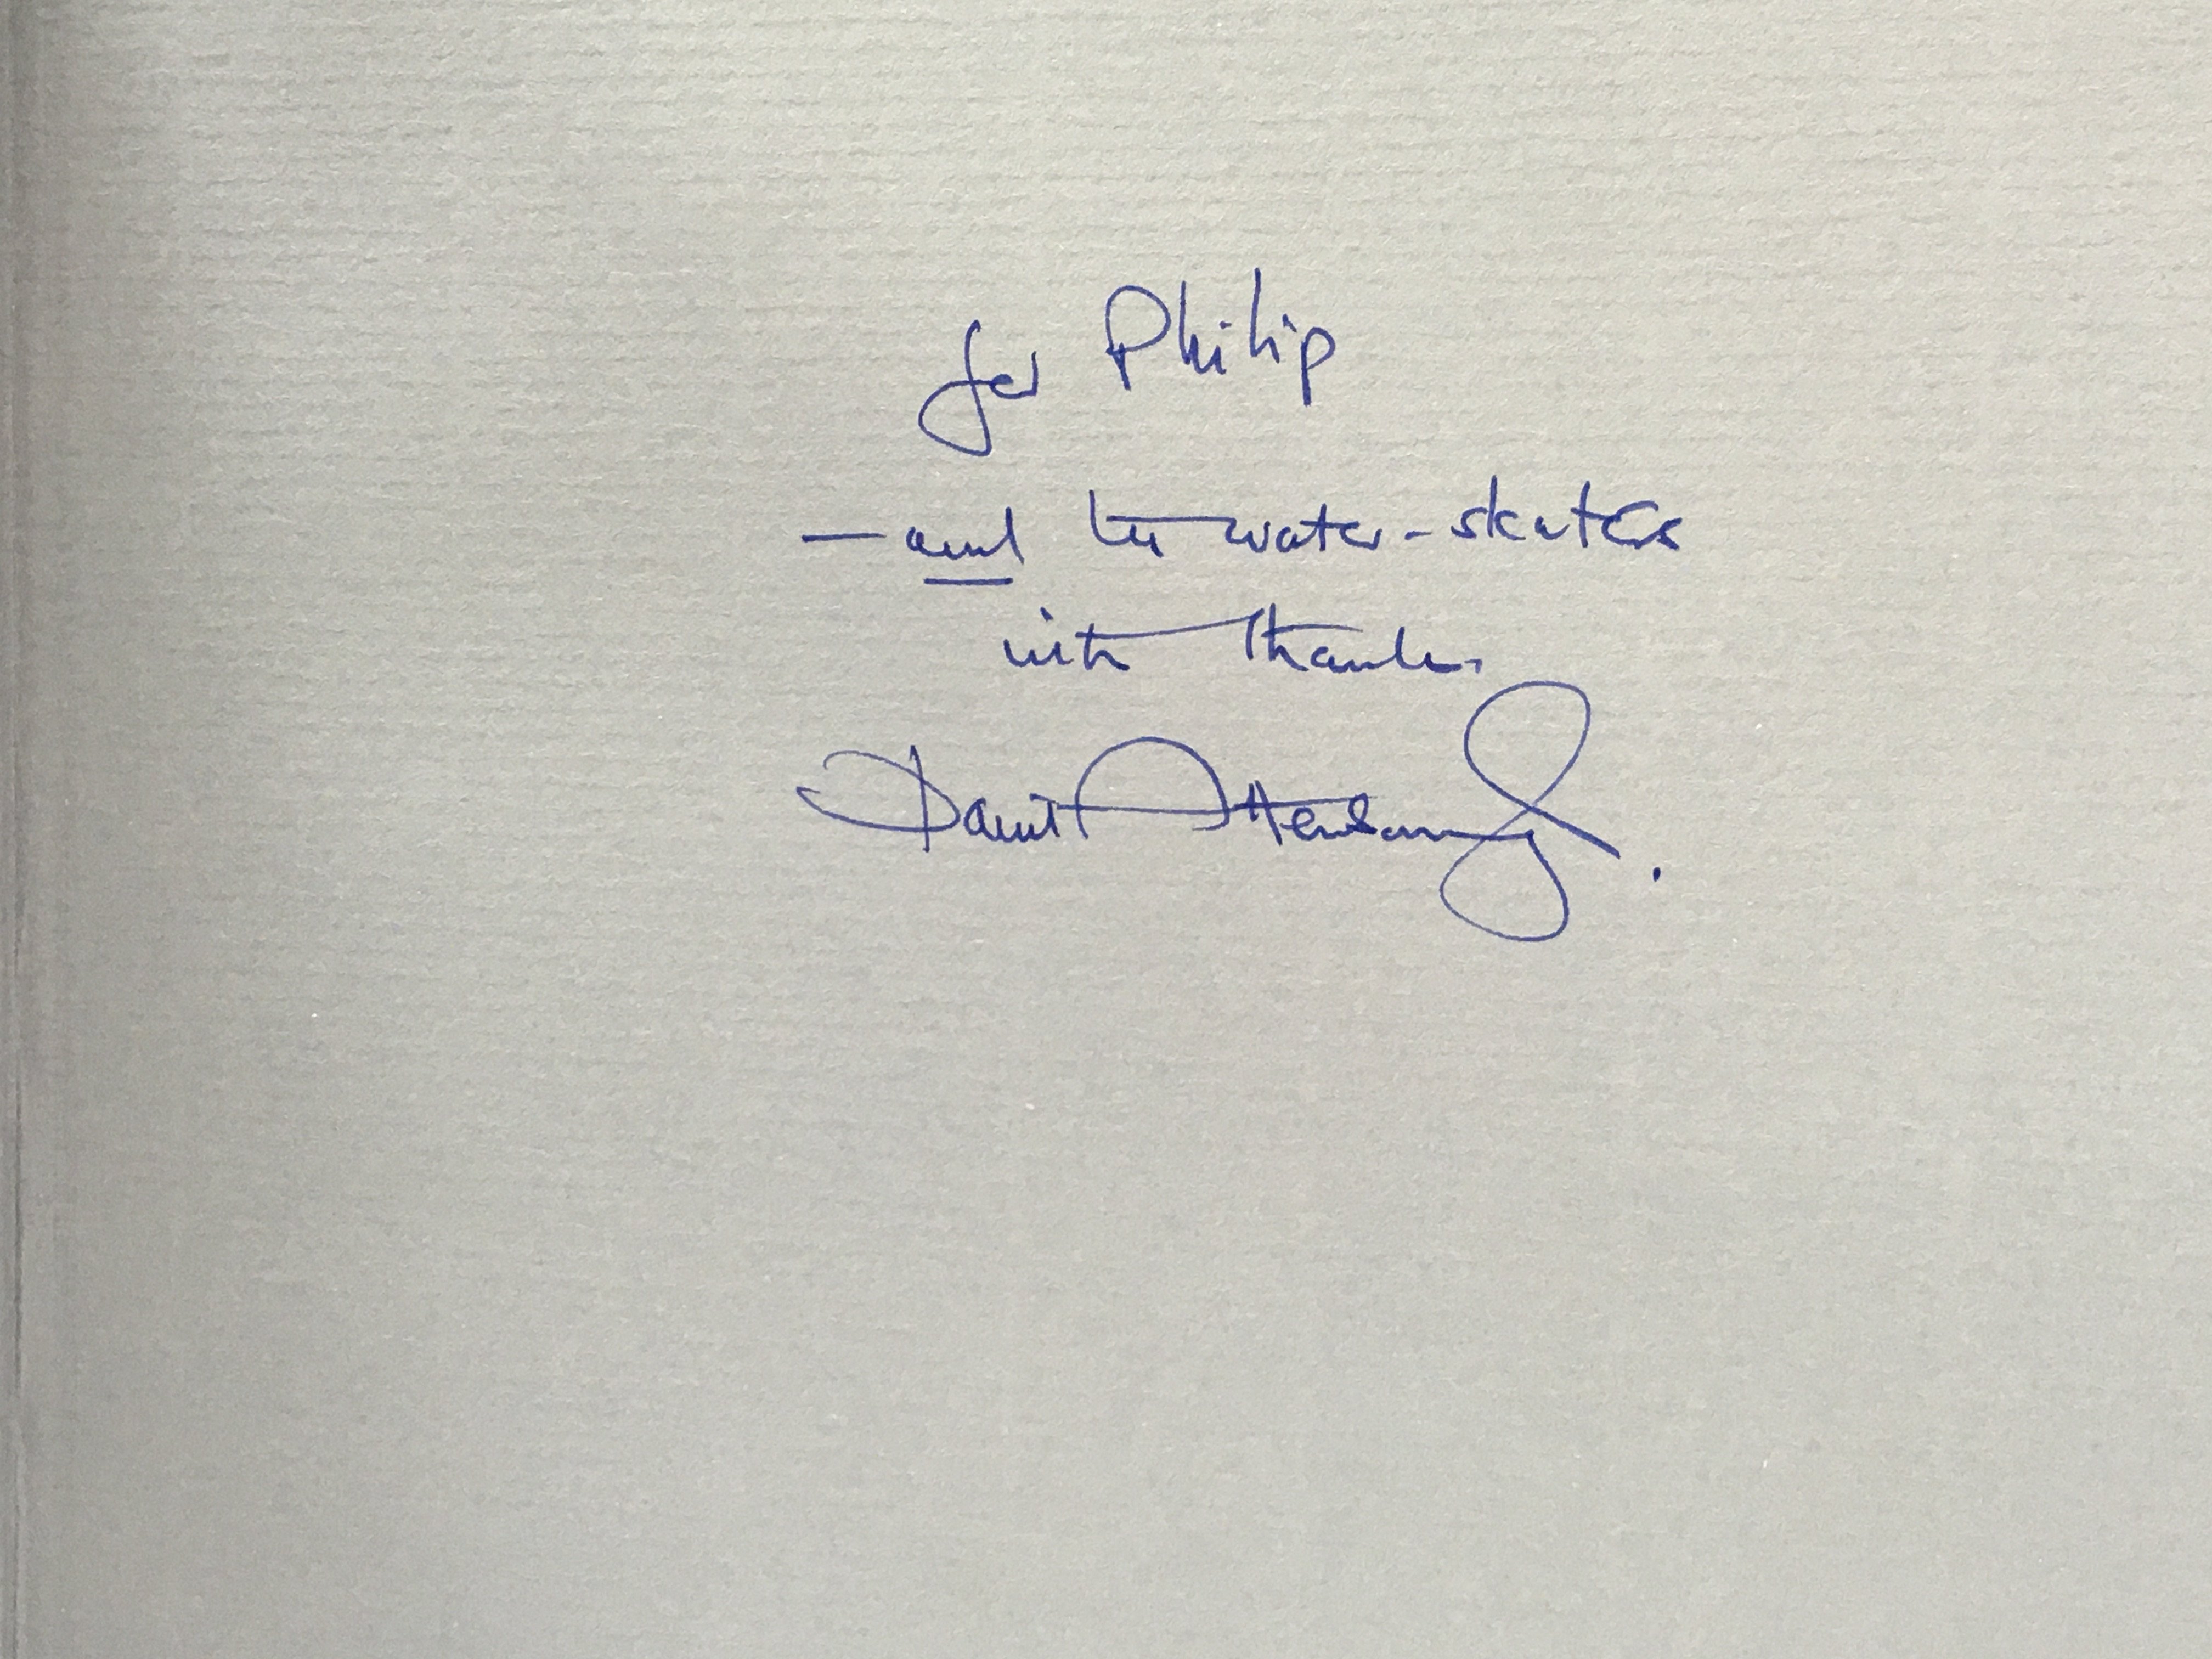 for Philip
— and the water-skaters
with thanks.
David Attenborough.